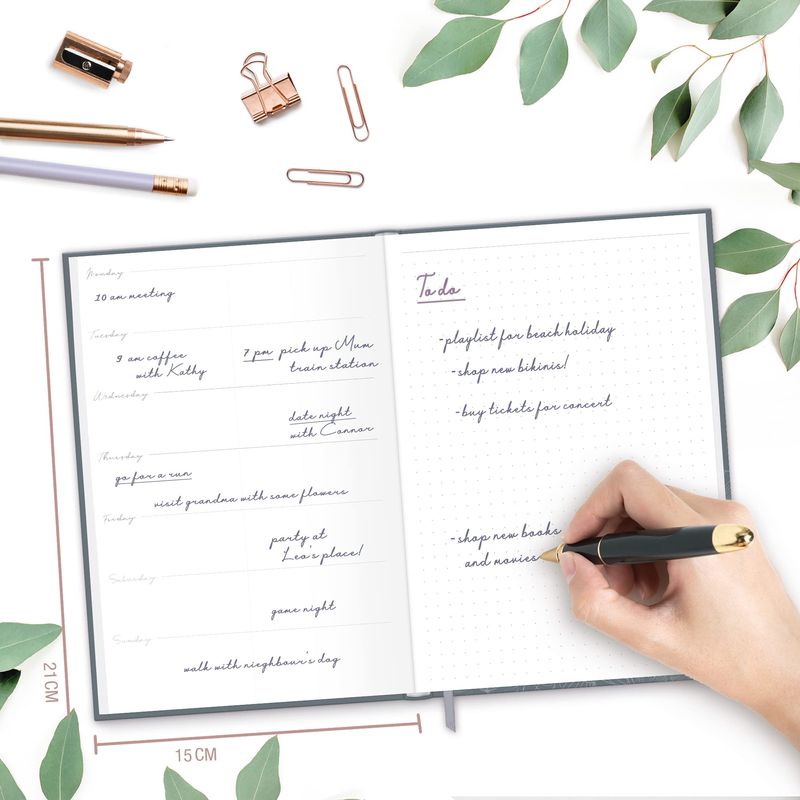 Monday
10 am meeting
Tuesday
9 am coffee
with Kathy
7 pm pick up Mum
train station
Wednesday
date night
with Connor
Thursday
go for a run
visit grandma with some flowers
Friday
party at
Leo's place!
Saturday
game night
Sunday
walk with nieghbour's dog
To do
-playlist for beach holiday
-shop new bikinis!
-buy tickets for concert
-shop new books
and movies
21CM
15CM